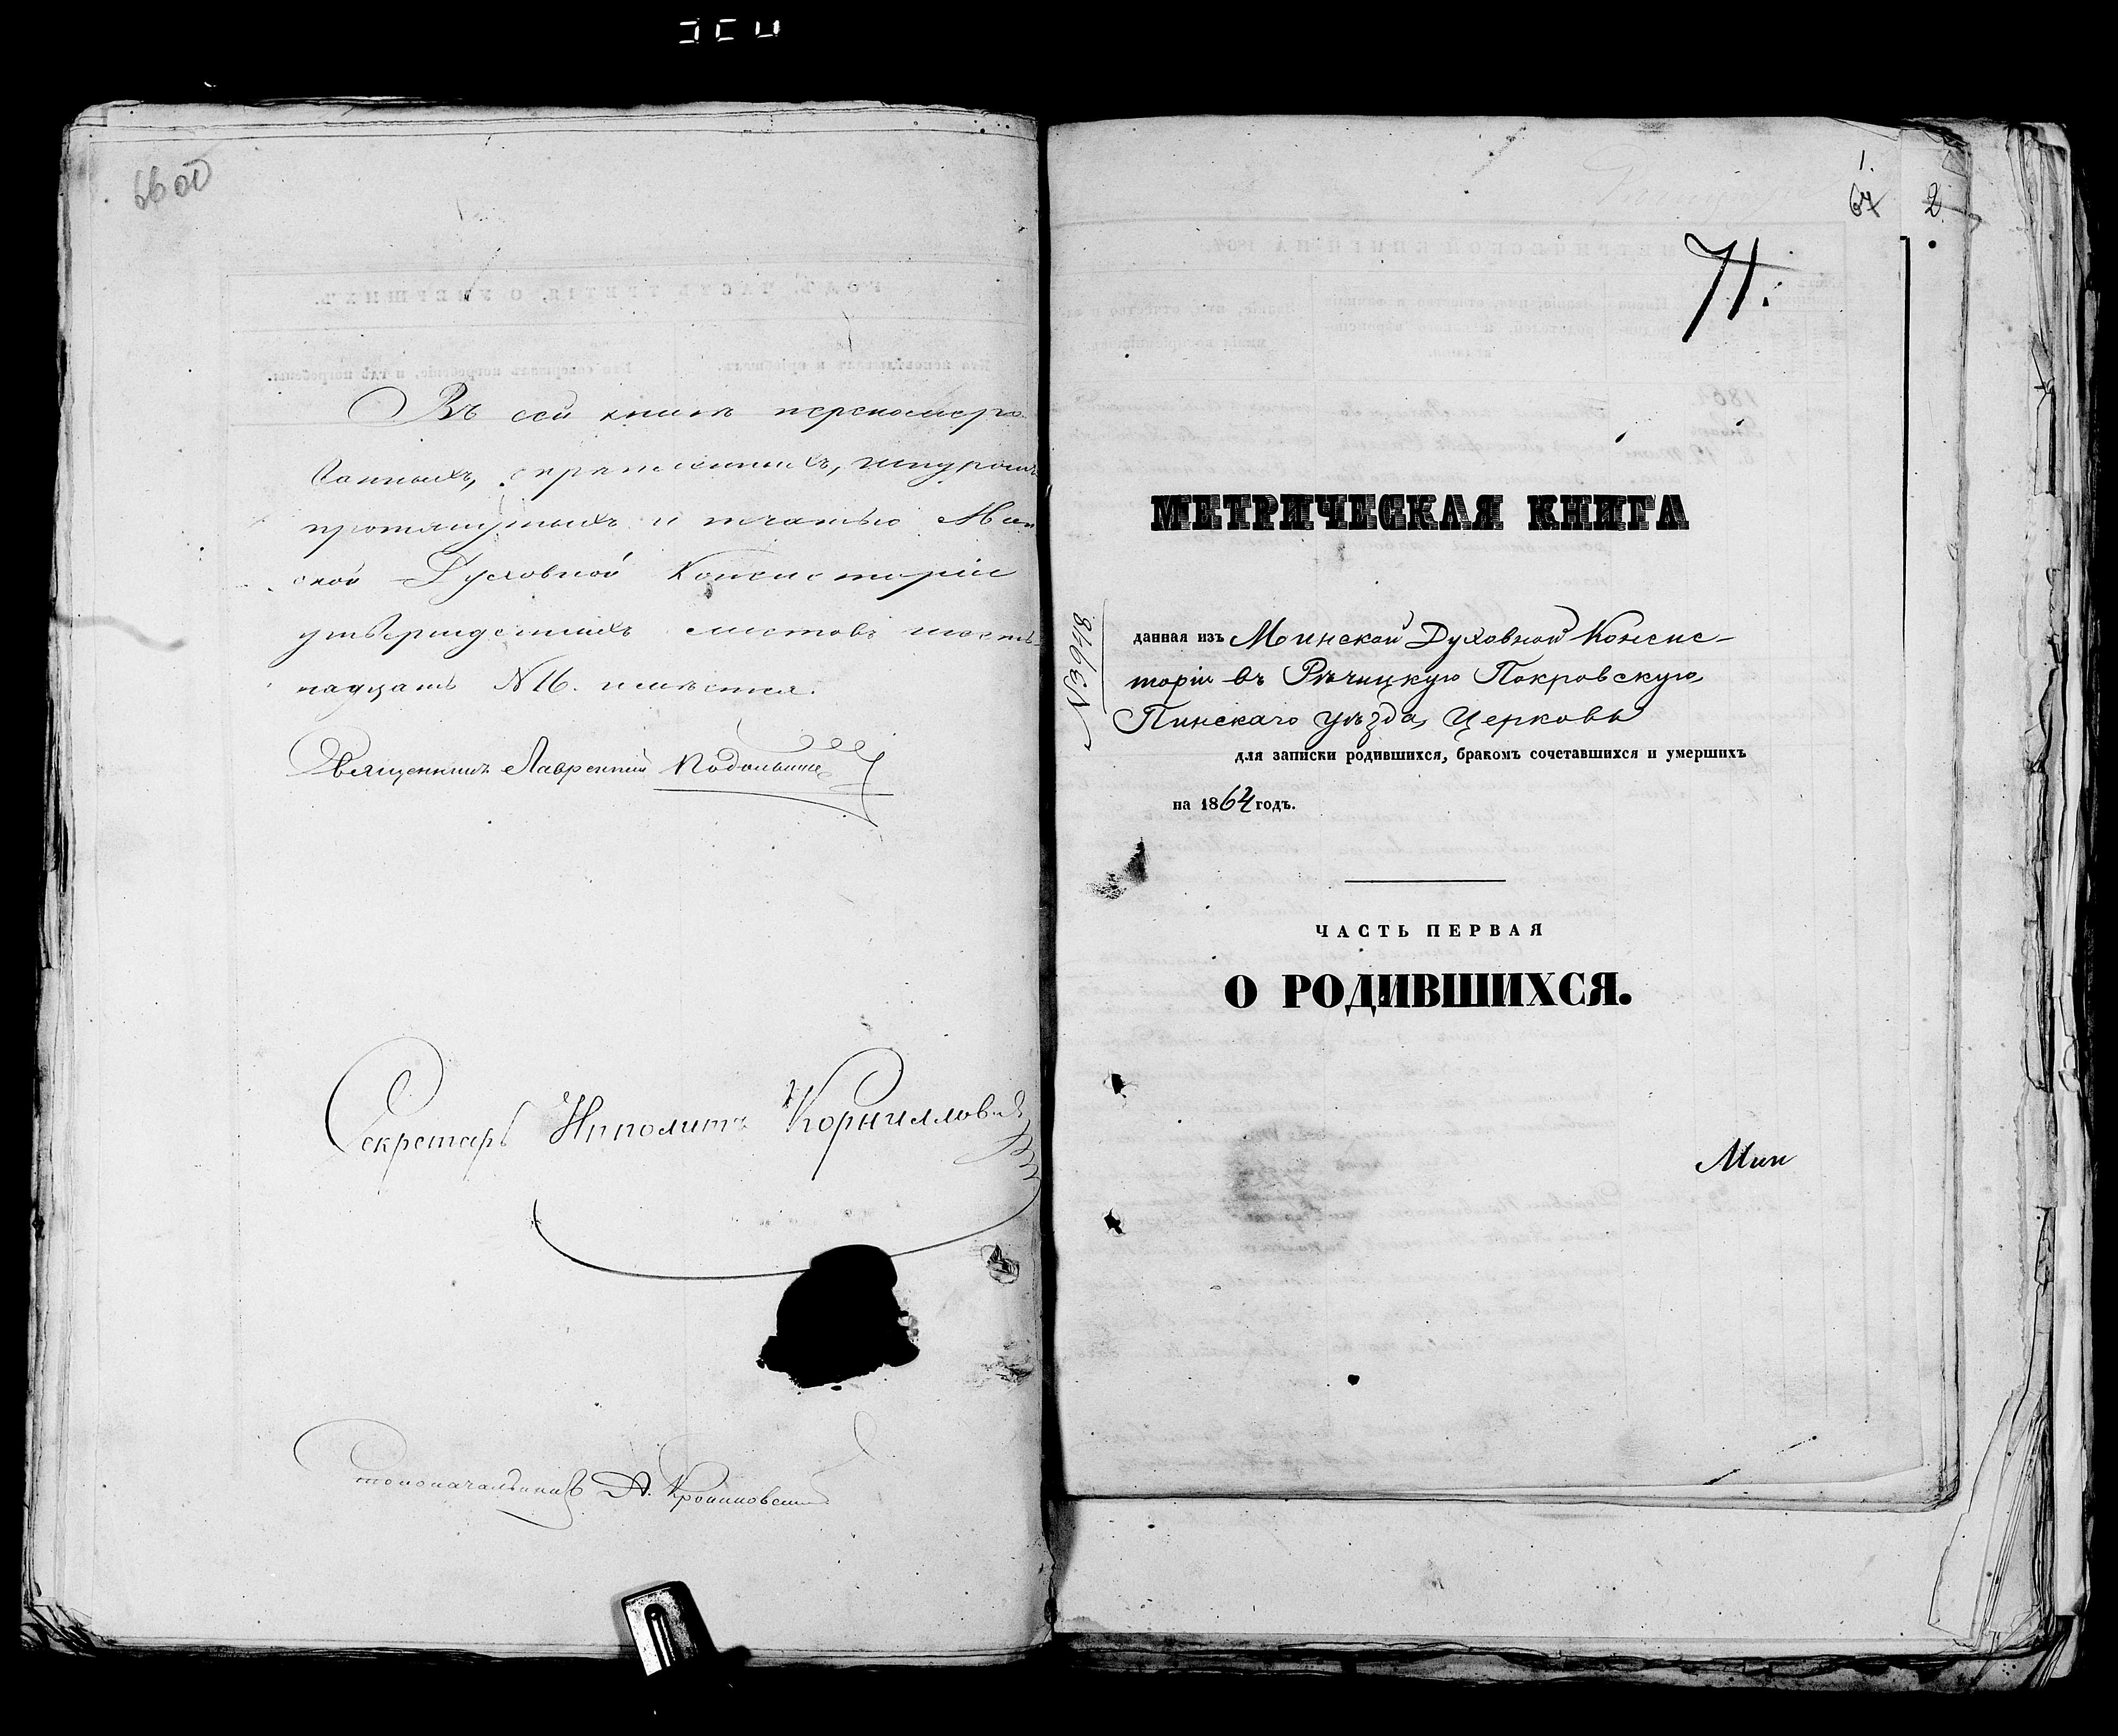 66 об
Въ сей книгѣ перенумеро-
ванныхъ, скрѣпленныхъ, шнуромъ
протянутыхъ и печатью Мин
ской Духовной Консисторіи
утвержденныхъ листовъ шест-
надцать N 16. имѣется.
Священникъ Лаврентій
Секретарь Ипполитъ Корнилловичъ
Столоначальникъ А.
1.
67
2
71.
МЕТРИЧЕСКАЯ КНИГА
N 3948
данная изъ Минской Духовной Консис-
торіи въ Рѣчицкую Покровскую,
Пинскаго уѣзда, Церковь
для записки родившихся, бракомъ сочетавшихся и умершихъ
на 1864 годъ.
ЧАСТЬ ПЕРВАЯ
О РОДИВШИХСЯ.
Мин